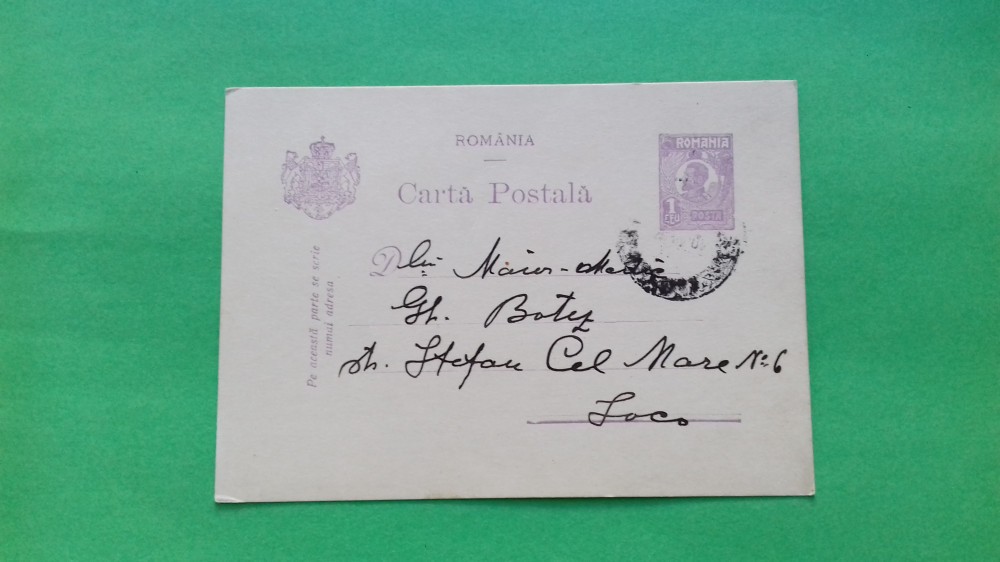 ROMÂNIA
Cartă Postală
ROMANIA
1 LEU
POSTA
Pe această parte se scrie
numai adresa
Dlui Maior-Medic
Gh. Botez
str. Ștefan Cel Mare No 6
Loco